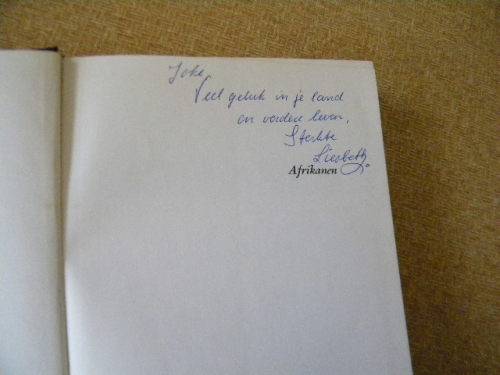 Joke,
Veel geluk in je land
en verdere leven,
Sterkte
Liesbeth
Afrikanen